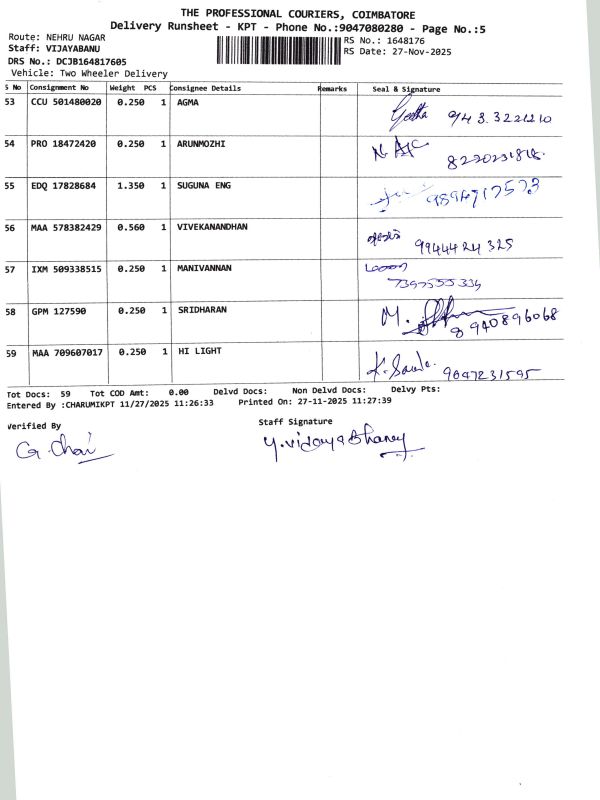 THE PROFESSIONAL COURIERS, COIMBATORE
Delivery Runsheet - KPT - Phone No.:9047080280 - Page No.:5
Route: NEHRU NAGAR RS No.: 1648176
Staff: VIJAYABANU RS Date: 27-Nov-2025
DRS No.: DCJB164817605
Vehicle: Two Wheeler Delivery
S No Consignment No Weight PCS Consignee Details Remarks Seal & Signature
53 CCU 501480020 0.250 1 AGMA Geetha 943 3221210
54 PRO 18472420 0.250 1 ARUNMOZHI
55 EDQ 17828684 1.350 1 SUGUNA ENG 9894717573
56 MAA 578382429 0.560 1 VIVEKANANDHAN 9944424325
57 IXM 509338515 0.250 1 MANIVANNAN
58 GPM 127590 0.250 1 SRIDHARAN M. 8940896068
59 MAA 709607017 0.250 1 HI LIGHT 9047231595
Tot Docs: 59 Tot COD Amt: 0.00 Delvd Docs: Non Delvd Docs: Delvy Pts:
Entered By :CHARUMIKPT 11/27/2025 11:26:33 Printed On: 27-11-2025 11:27:39
Verified By Staff Signature
G. Chai Y.vijayabhanu